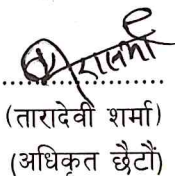 (तारादेवी शर्मा)
(अधिकृत छैटौं)